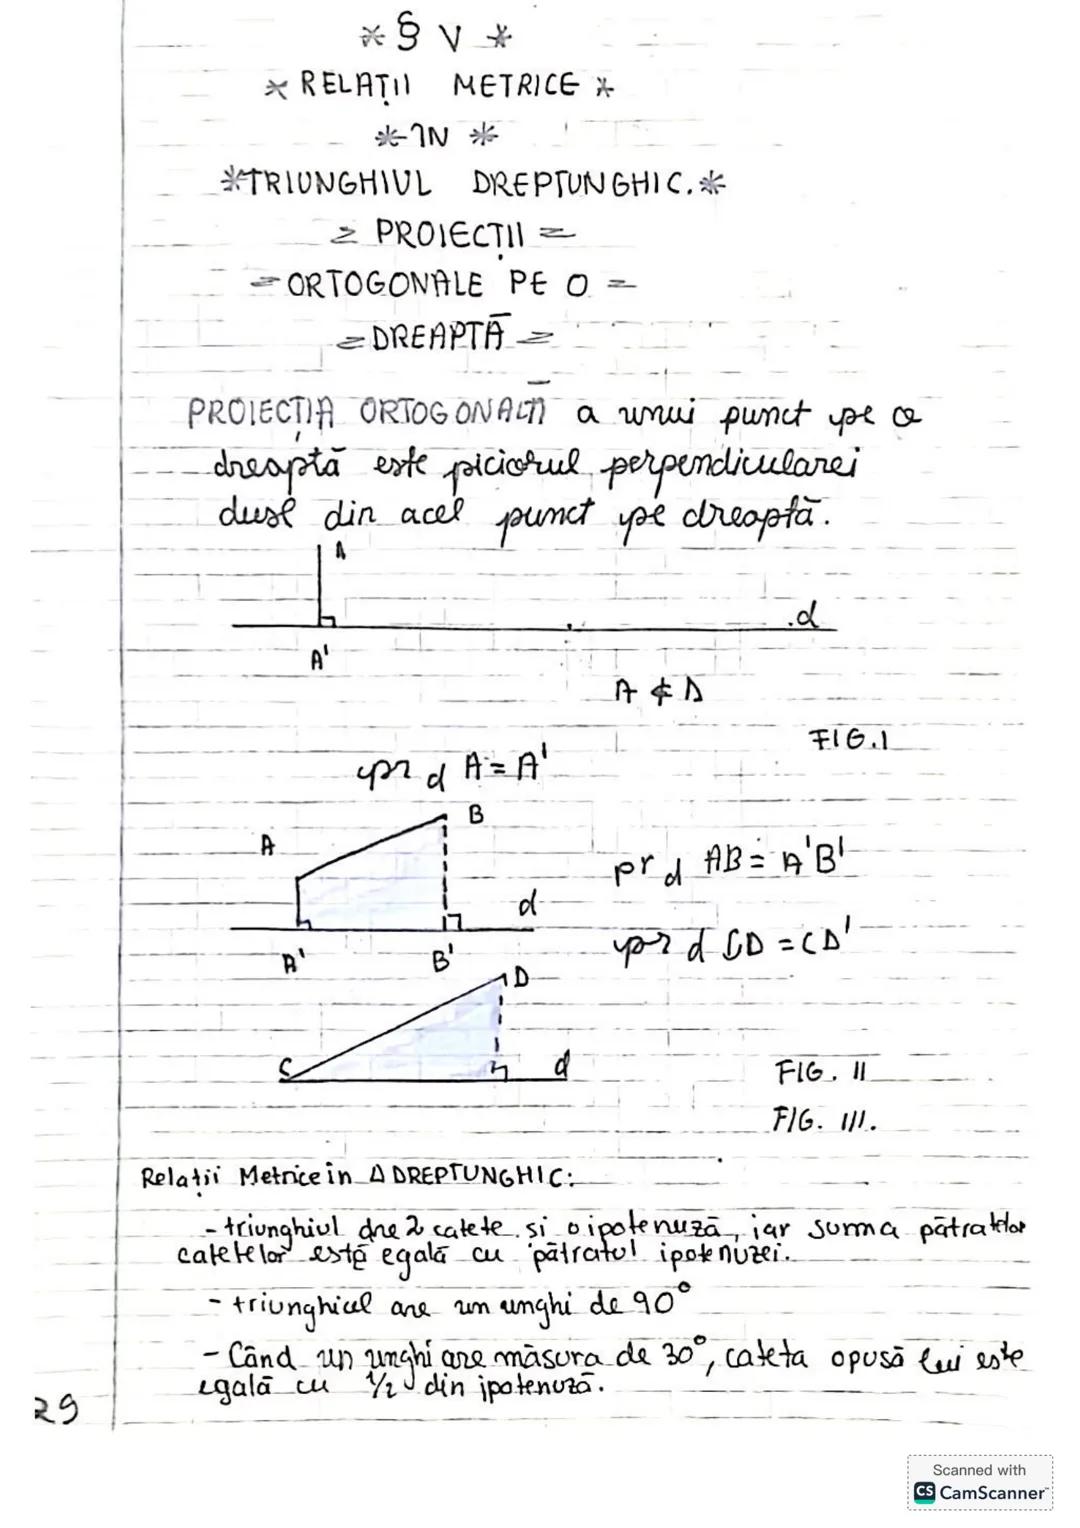 * § V *
* RELAȚII METRICE *
* ÎN *
*TRIUNGHIUL DREPTUNGHIC.*
= PROIECȚII =
= ORTOGONALE PE O =
= DREAPTĂ =
PROIECȚIA ORTOGONALĂ a unui punct pe o
dreaptă este piciorul perpendicularei
duse din acel punct pe dreaptă.
A
d
A'
A ∉ D
FIG.1
pr d A = A'
B
A
pr d AB = A'B'
d
pr d CD = CD'
A' B'
D
C d
FIG. II
FIG. III.
Relații Metrice în Δ DREPTUNGHIC:
- triunghiul are 2 catete și o ipotenuză, iar suma pătratelor
catetelor este egală cu pătratul ipotenuzei.
- triunghiul are un unghi de 90°
- Când un unghi are măsura de 30°, cateta opusă lui este
egală cu 1/2 din ipotenuză.
29
Scanned with
CS CamScanner